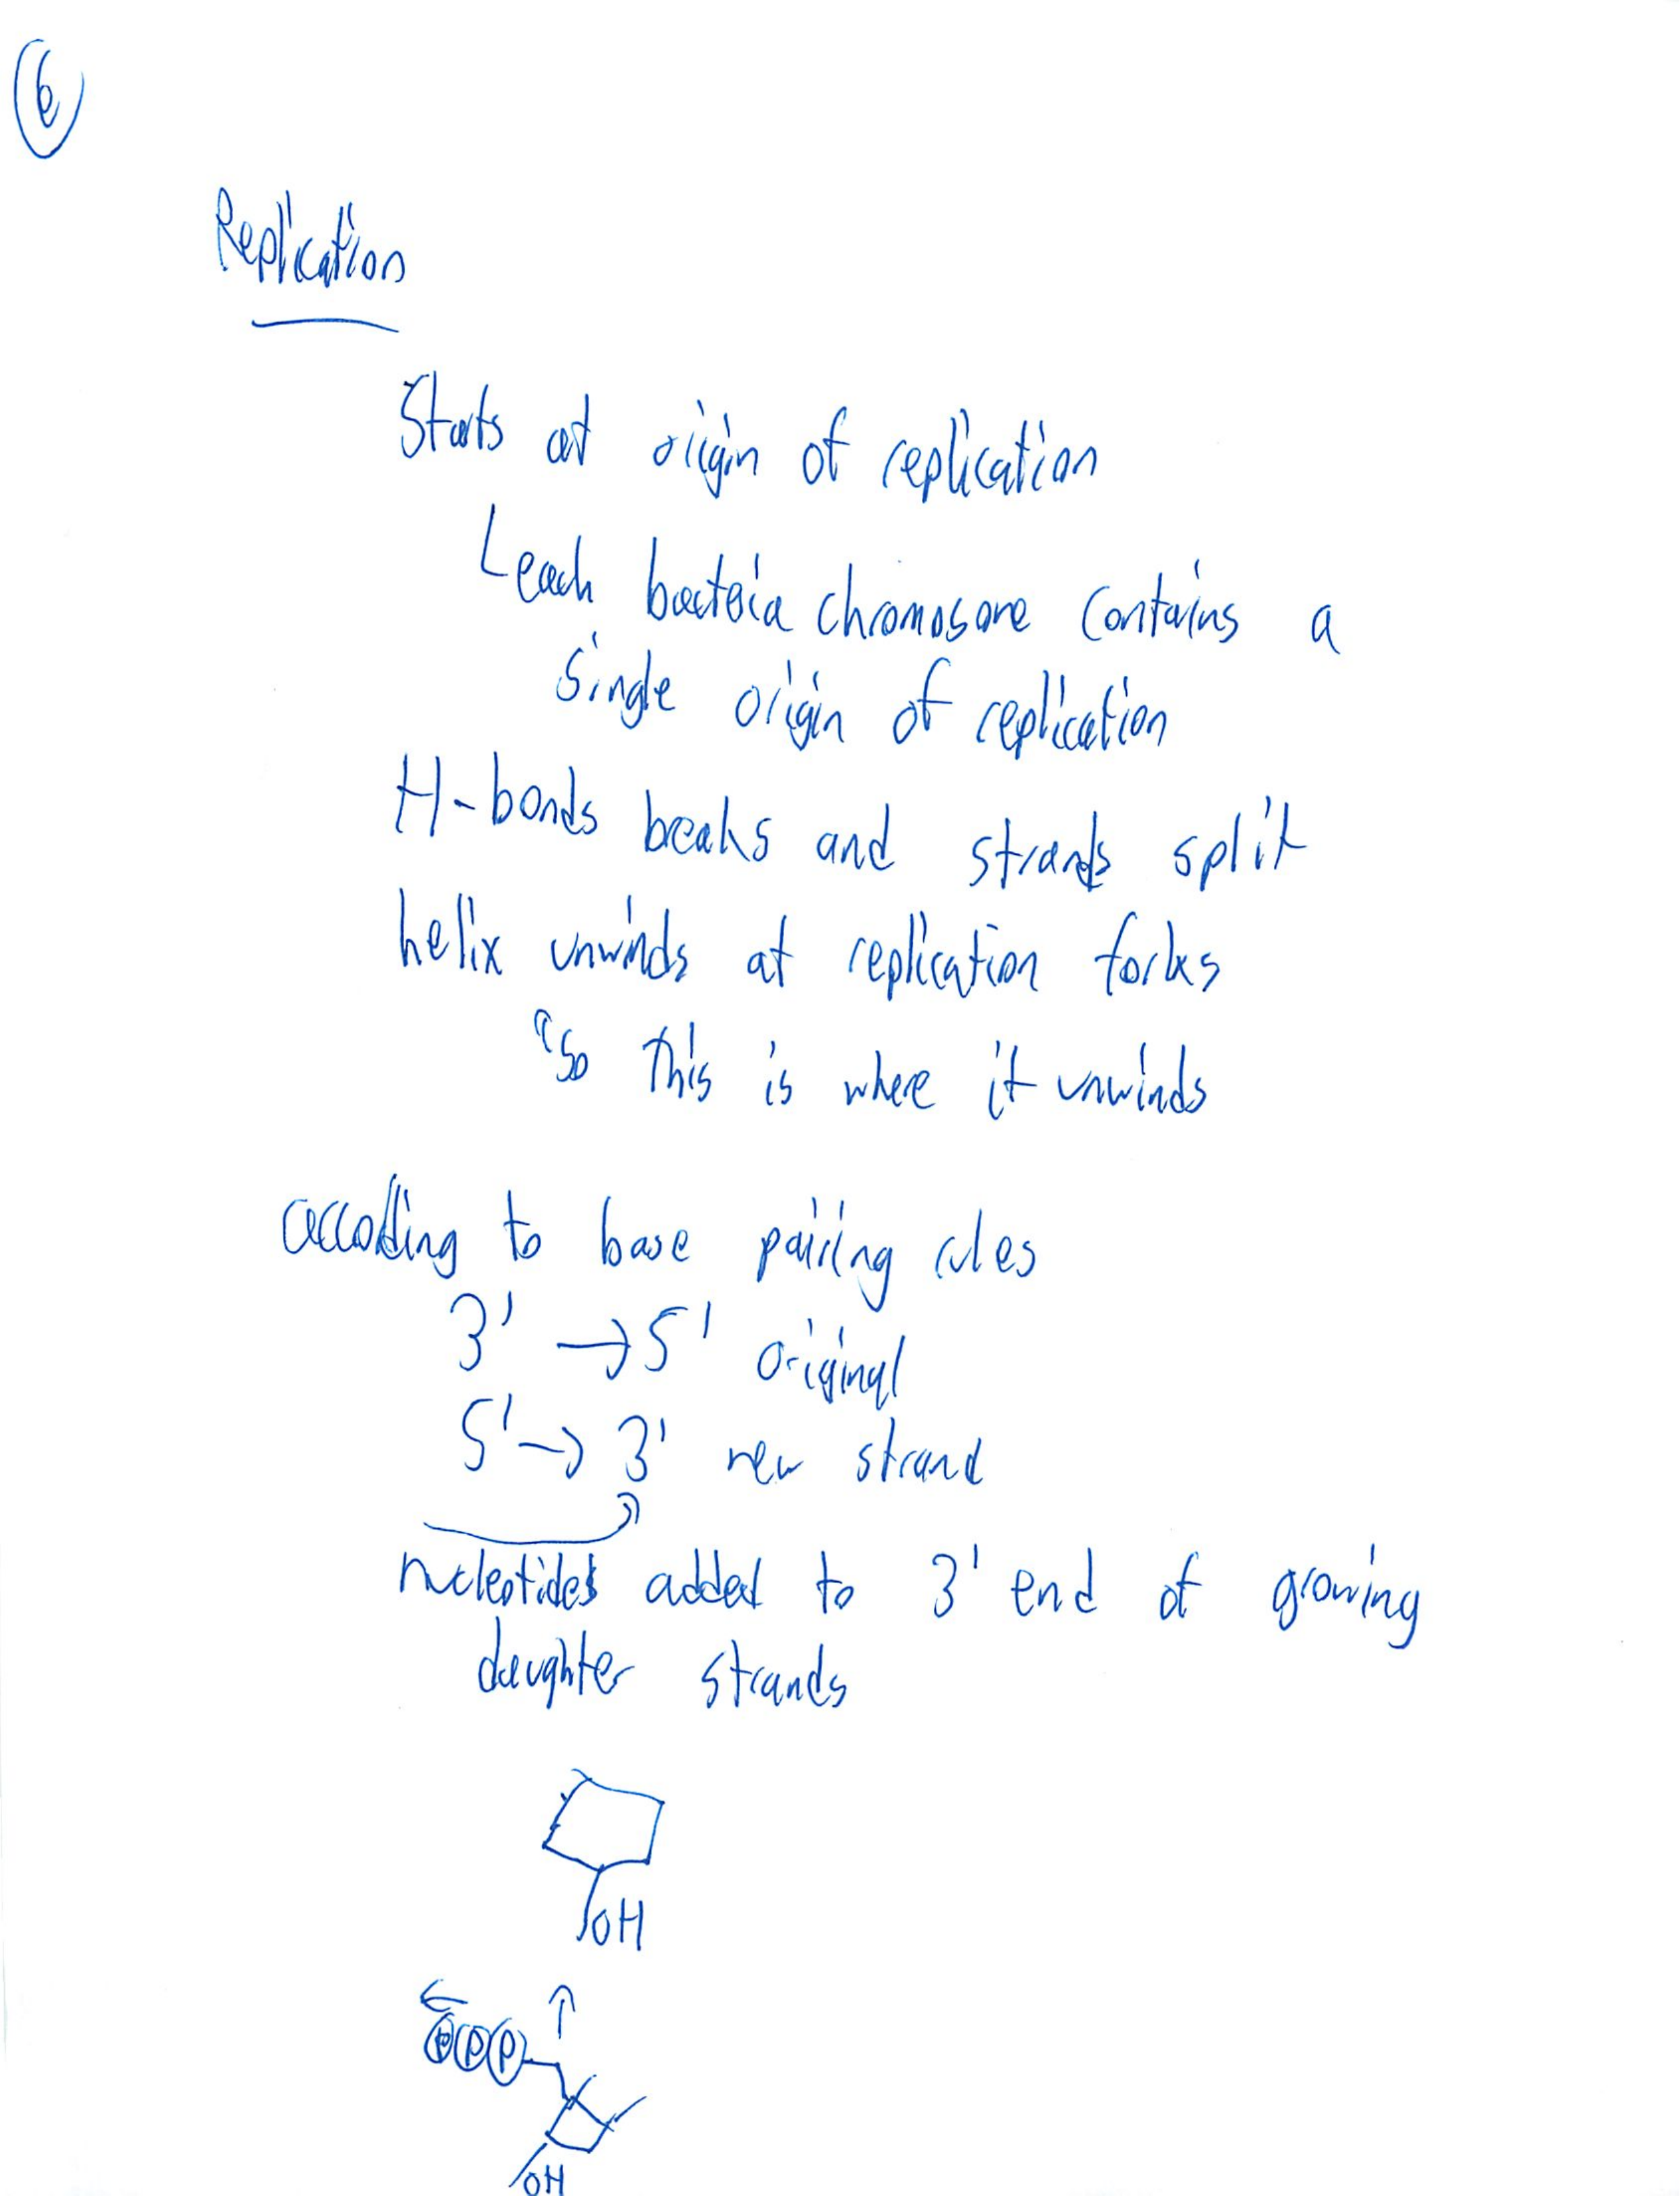 6
Replication
Starts at origin of replication
each bacteria chromosome contains a
single origin of replication
H-bonds breaks and strands split
helix unwinds at replication forks
so this is where it unwinds
according to base pairing rules
3' → 5' original
5' → 3' new strand
nucleotides added to 3' end of growing
daughter strands
OH
← ↑
PPP
OH